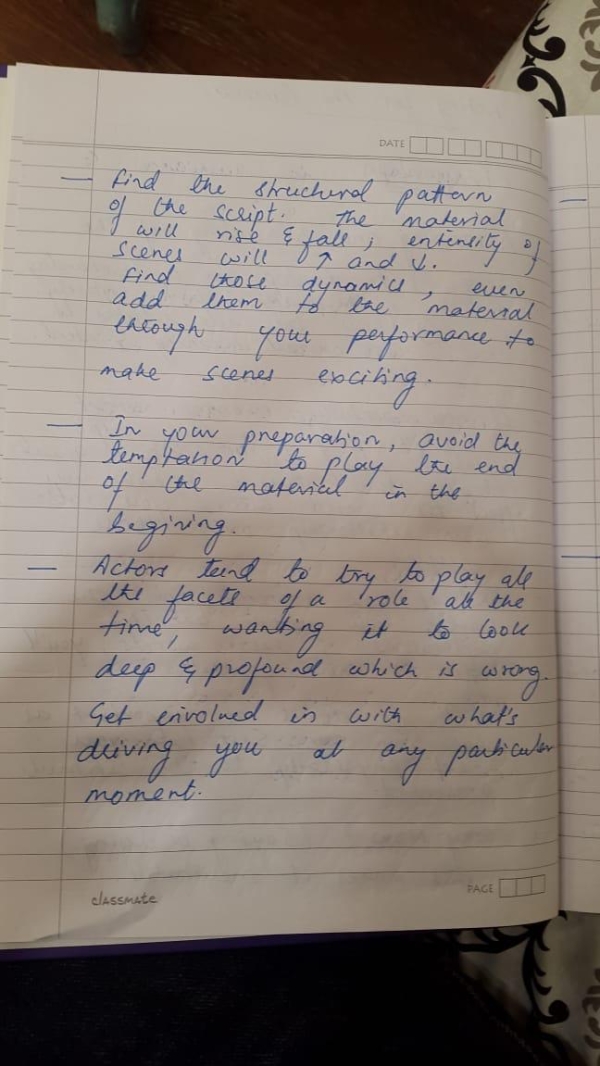 DATE
— Find the structural pattern
of the script. The material
will rise & fall, entensity of
scenes will ↑ and ↓.
Find those dynamics, even
add them to the material
through your performance to
make scenes exciting.
— In your preparation, avoid the
temptation to play the end
of the material in the
begining.
— Actors tend to try to play all
the facets of a role all the
time, wanting it to look
deep & profound which is wrong.
Get envolved in with what's
driving you at any particular
moment.
classmate
PAGE